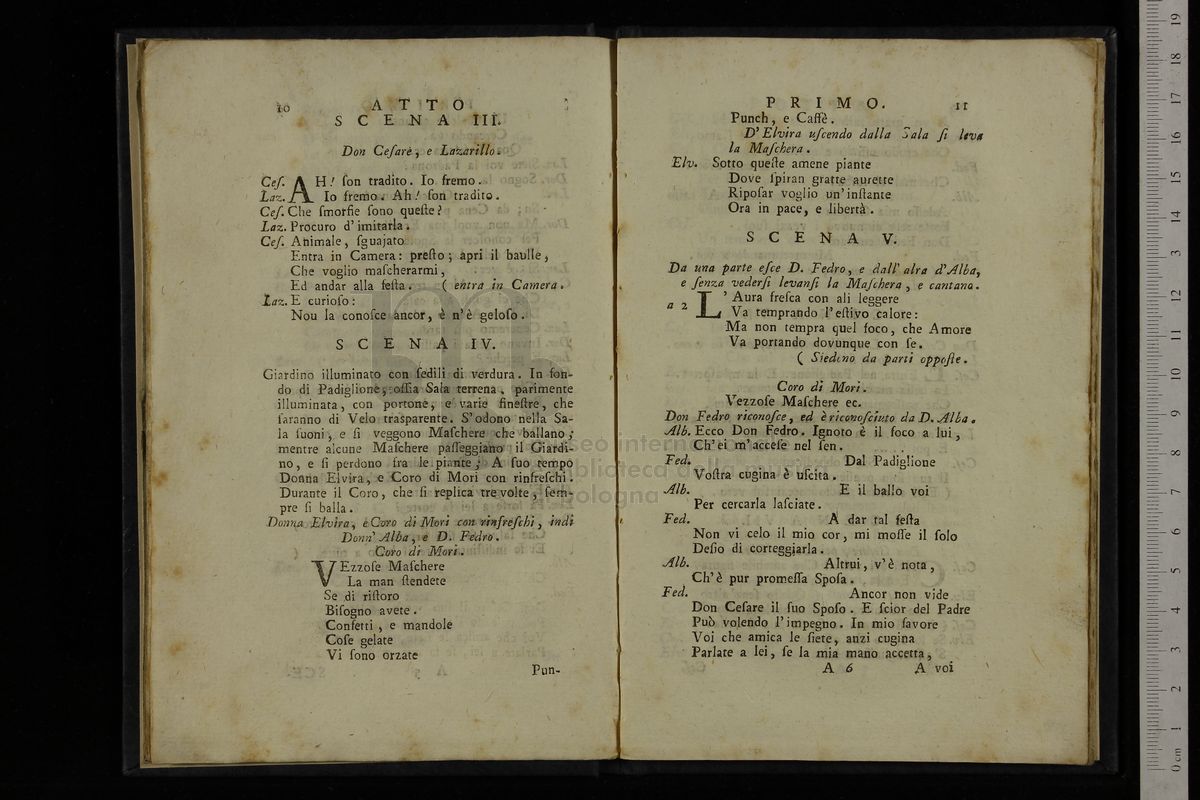 10
ATTO
SCENA III.
Don Ceſare, e Lazarillo.
Ceſ. AH! ſon tradito. Io fremo.
Laz. Io fremo. Ah! ſon tradito.
Ceſ. Che ſmorfie ſono queſte?
Laz. Procuro d'imitarla.
Ceſ. Animale, ſguajato
Entra in Camera: preſto; apri il baulle,
Che voglio maſcherarmi,
Ed andar alla feſta. ( entra in Camera.
Laz. E curioſo:
Nou la conoſce ancor, è n'è geloſo.
SCENA IV.
Giardino illuminato con ſedili di verdura. In fon-
do di Padiglione, oſſia Sala terrena, parimente
illuminata, con portone, e varie fineſtre, che
ſaranno di Velo trasparente. S'odono nella Sa-
la ſuoni, e ſi veggono Maſchere che ballano;
mentre alcune Maſchere paſſeggiano il Giardi-
no, e ſi perdono fra le piante; A ſuo tempo
Donna Elvira, e Coro di Mori con rinfreſchi.
Durante il Coro, che ſi replica tre volte, ſem-
pre ſi balla.
Donna Elvira, e Coro di Mori con rinfreſchi, indi
Donn' Alba, e D. Fedro.
Coro di Mori.
VEzzoſe Maſchere
La man ſtendete
Se di riſtoro
Biſogno avete.
Confetti, e mandole
Coſe gelate
Vi ſono orzate
Pun-
PRIMO.
11
Punch, e Caffè.
D' Elvira uſcendo dalla Sala ſi leva
la Maſchera.
Elv. Sotto queſte amene piante
Dove ſpiran gratte aurette
Ripoſar voglio un'inſtante
Ora in pace, e libertà.
SCENA V.
Da una parte eſce D. Fedro, e dall'alra d'Alba,
e ſenza vederſi levanſi la Maſchera, e cantano.
a 2 L' Aura freſca con ali leggere
Va temprando l'eſtivo calore:
Ma non tempra quel foco, che Amore
Va portando dovunque con ſe.
( Siedono da parti oppoſte.
Coro di Mori.
Vezzoſe Maſchere ec.
Don Fedro riconoſce, ed è riconoſciuto da D. Alba.
Alb. Ecco Don Fedro. Ignoto è il foco a lui,
Ch'ei m'acceſe nel ſen.
Fed. Dal Padiglione
Voſtra cugina è uſcita.
Alb. E il ballo voi
Per cercarla laſciate.
Fed. A dar tal feſta
Non vi celo il mio cor, mi moſſe il ſolo
Deſio di corteggiarla.
Alb. Altrui, v'è nota,
Ch'è pur promeſſa Spoſa.
Fed. Ancor non vide
Don Ceſare il ſuo Spoſo. E ſcior del Padre
Può volendo l'impegno. In mio favore
Voi che amica le ſiete, anzi cugina
Parlate a lei, ſe la mia mano accetta,
A 6 A voi